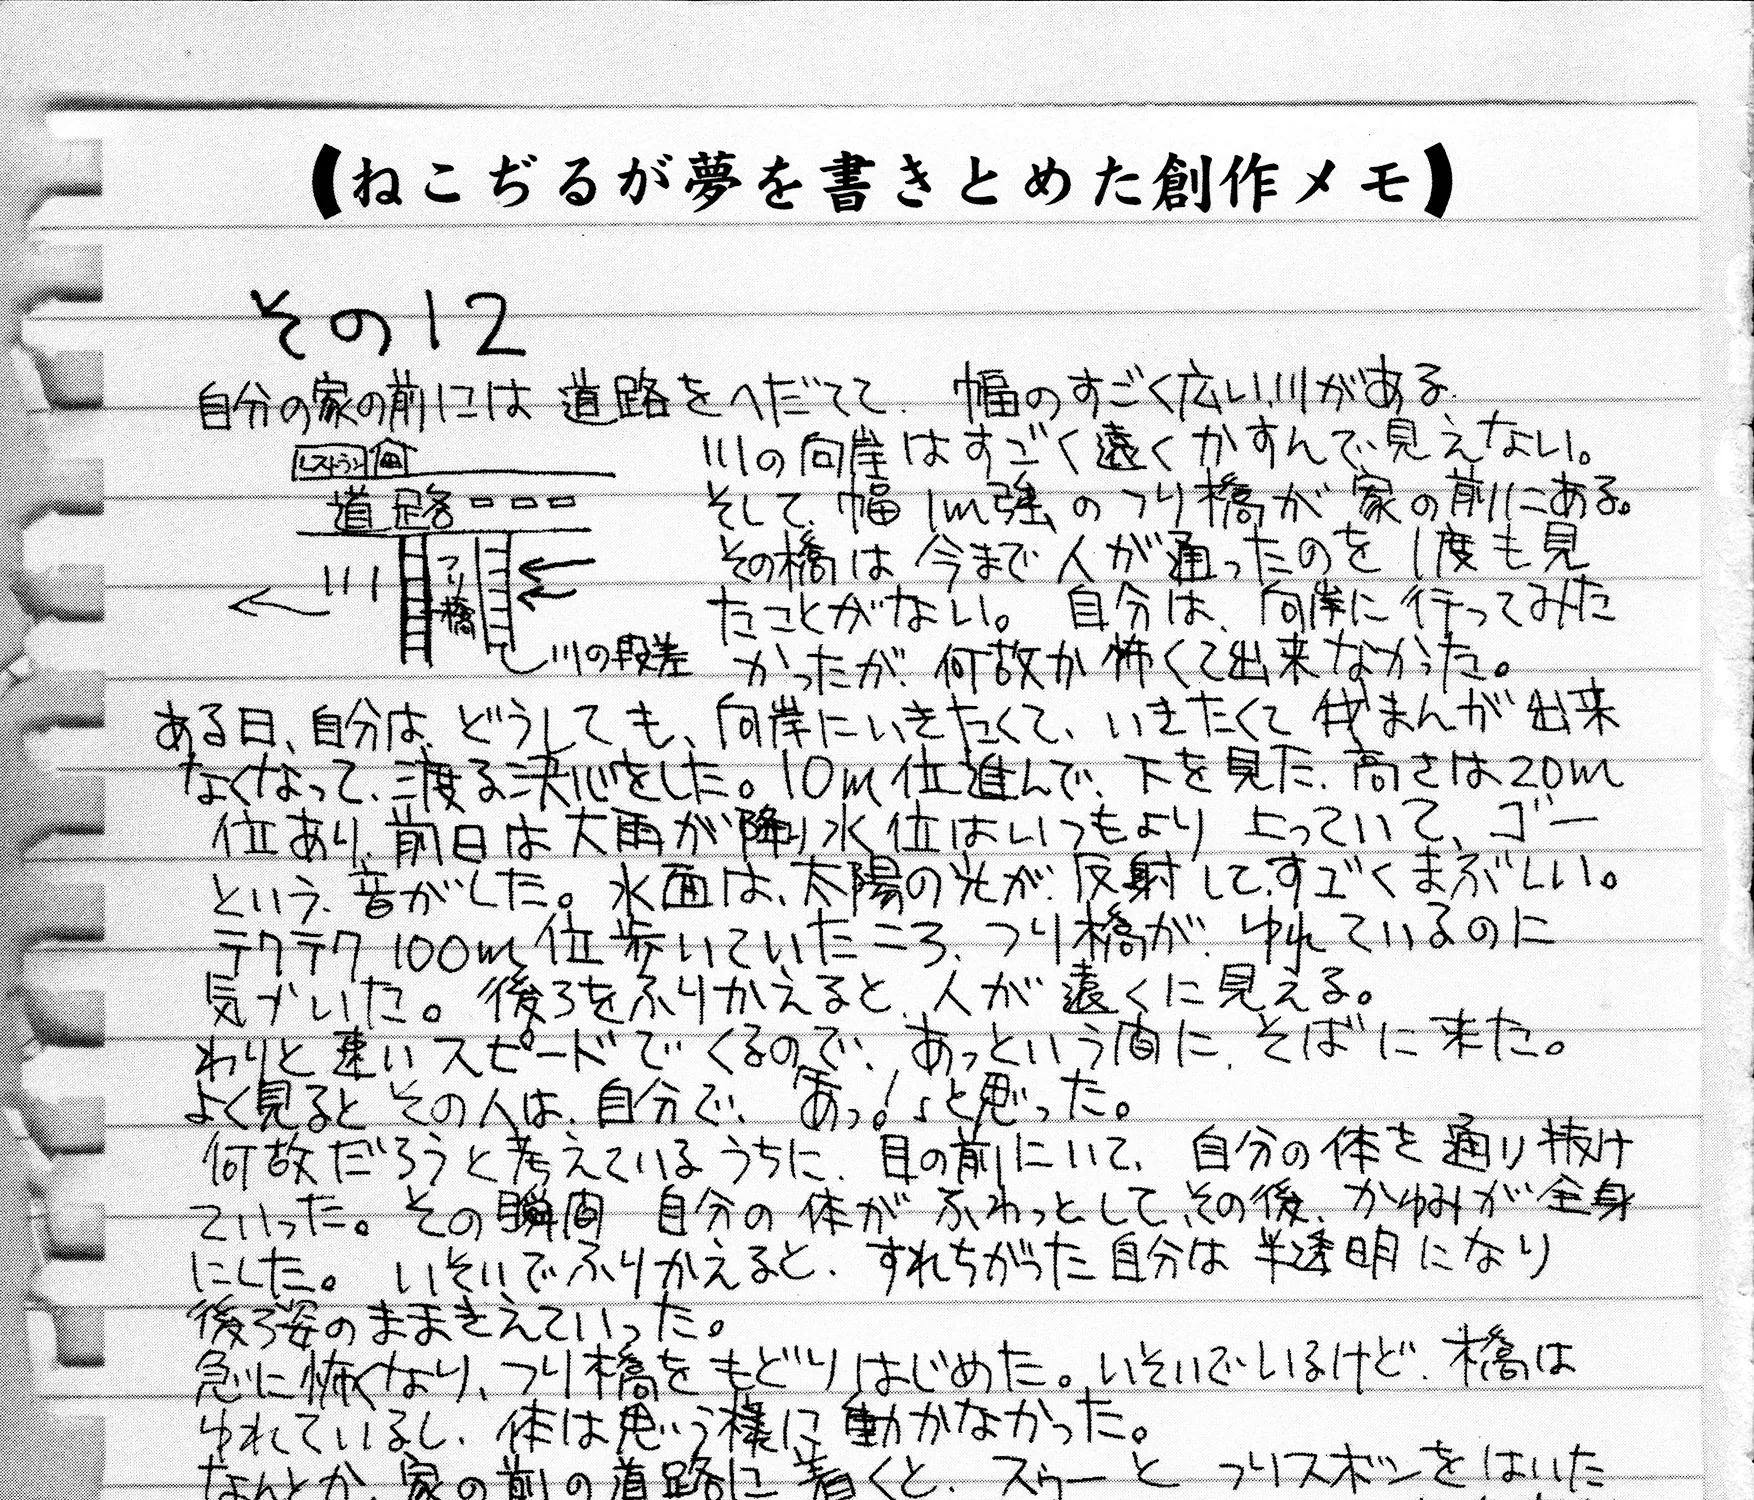 【ねこぢるが夢を書きとめた創作メモ】
その12
自分の家の前には 道路をへだてて、幅のすごく広い川がある。
レストラン
道路
つり橋
川の段差
川の向岸はすごく遠くかすんで見えない。
そして、幅1m強のつり橋が家の前にある。
その橋は今まで人が通ったのを1度も見
たことがない。 自分は、向岸に行ってみた
かったが、何故か怖くて出来なかった。
ある日、自分は、どうしても、向岸にいきたくて、いきたくて我まんが出来
なくなって、渡る決心をした。10m位進んで、下を見た、高さは20m
位あり、前日は大雨が降り水位はいつもより上っていて、ゴー
という、音がした。水面は、太陽の光が、反射して、すごくまぶしい。
テクテク100m位歩いていたころ、つり橋が、ゆれているのに
気づいた。後ろをふりかえると、人が遠くに見える。
わりと速いスピードでくるので、あっという間に、そばに来た。
よく見るとその人は、自分で、「あっ!」と思った。
何故だろうと考えているうちに、目の前にいて、自分の体を通り抜け
ていった。その瞬間 自分の体がふわっとして、その後、かゆみが全身
にした。 いそいでふりかえると、すれちがった自分は半透明になり
後ろ姿のままきえていった。
急に怖くなり、つり橋をもどりはじめた。いそいでいるけど、橋は
ゆれているし、体は思う様に動かなかった。
なんとか、家の前の道路に着くと、スゥーと つりズボンをはいた